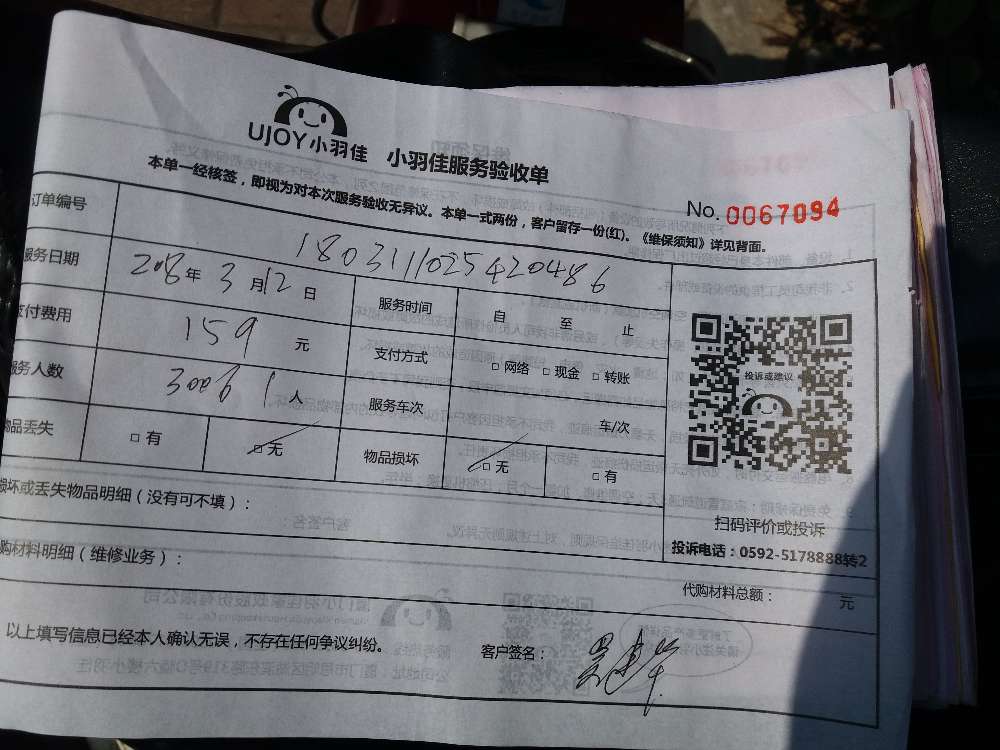 UJOY小羽佳 小羽佳服务验收单
本单一经核签，即视为对本次服务验收无异议。本单一式两份，客户留存一份(红)。《维保须知》详见背面。
No. 0067094
订单编号 180311025420486
服务日期 2018年3月12日 服务时间 自 至 止
支付费用 159 元 支付方式 □ 网络 □ 现金 □ 转账
服务人数 3006 1 人 服务车次 车/次
物品丢失 □ 有 □ 无 物品损坏 □ 无 □ 有
投诉或建议
扫码评价或投诉
投诉电话：0592-5178888转2
损坏或丢失物品明细（没有可不填）：
购材料明细（维修业务）：
代购材料总额： 元
以上填写信息已经本人确认无误，不存在任何争议纠纷。
客户签名：